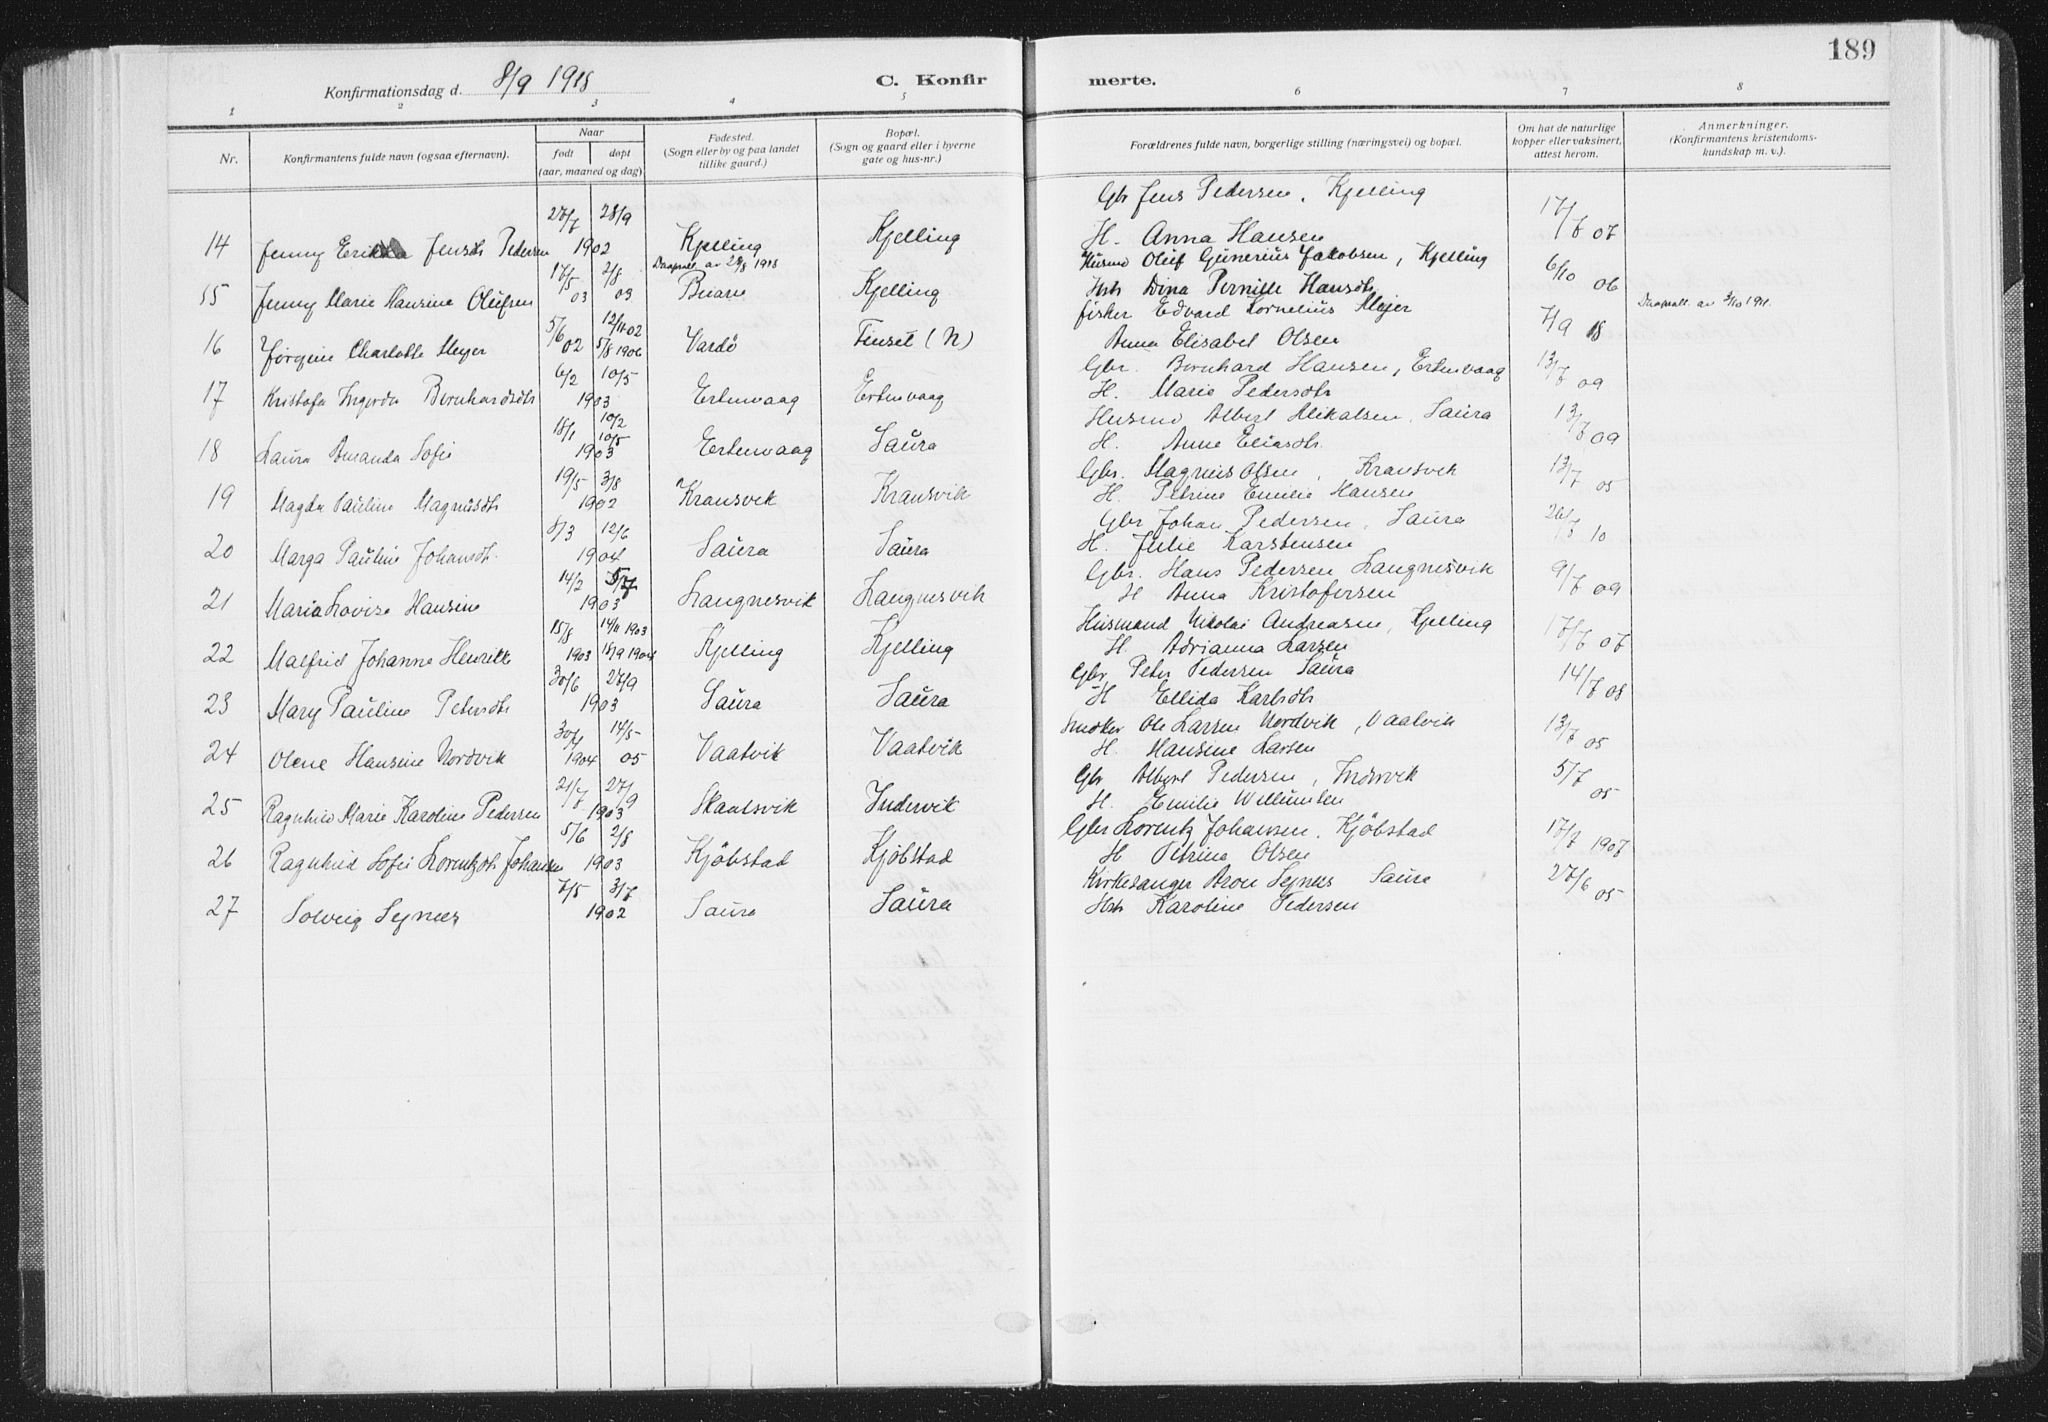 189
Konfirmationsdag d. 8/9 1918
C. Konfirmerte.
1 2 3 4 5 6 7 8
Nr.
Konfirmantens fulde navn (ogsaa efternavn).
Naar
født døpt
(aar, maaned og dag)
Fødested.
(Sogn eller by og paa landet
tillike gaard.)
Bopæl.
(Sogn og gaard eller i byerne
gate og hus-nr.)
Forældrenes fulde navn, borgerlige stilling (næringsvei) og bopæl.
Om hat de naturlige
kopper eller vaksinert,
attest herom.
Anmerkninger.
(Konfirmantens kristendoms-
kundskap m. v.)
27/7 28/9 Gbr Jens Pedersen, Kjelling 17/7 07
14 Jenny Jensdtr Pedersen 1902 Kjelling Kjelling H. Anna Hansen
17/5 2/8 Daapsatt. av 28/8 1918 Husmd Oluf Gunerius Jakobsen, Kjelling 6/10 06
15 Jenny Marie Hansine Olufsen 03 03 Beiarn Kjelling Hstr Dina Pernille Hansdtr
5/6 12/11 02 fisker Edvard Kornelius Meyer 7/9 18 Daapsatt. av 3/10 1911.
16 Jørgine Charlotte Meyer 02 5/8 1906 Vardö Finset (N) Anna Elisabet Olsen
6/2 10/5 Gbr. Bernhard Hansen, Ertenvaag 13/7 09
17 Kristofa Ingerda Bernhardsdtr 1903 Ertenvaag Ertenvaag H. Marie Pedersdtr
18/1 10/2 10/5 Husmd Albert Mikalsen, Saura 13/7 09
18 Laura Amanda Sofie 1903 Ertenvaag Saura H. Anne Eliasdtr
19/5 3/8 Gbr. Magnus Olsen, Kransvik 13/7 05
19 Magda Pauline Magnusdtr 1902 Kransvik Kransvik H. Petrine Emilie Hansen
8/3 12/6 Gbr Johan Pedersen, Saura 26/7 10
20 Marga Pauline Johansdtr. 1904 Saura Saura H. Julie Karstensen
14/2 5/7 Gbr. Hans Pedersen Langnesvik 9/7 09
21 Maria Lovise Hansine 1903 Langnesvik Langnesvik H Anna Kristofersen
15/8 14/11 1903 Husmand Nikolai Andreasen, Kjelling 17/7 07
22 Malfrid Johanne Henrikke 1903 18/9 1904 Kjelling Kjelling H. Adrianna Larsen
30/6 27/9 Gbr Peter Pedersen Saura 14/7 08
23 Mary Pauline Petersdtr 1903 Saura Saura H Ellida Karlsdtr
30/4 14/5 Snedker Ole Larsen Nordvik, Vaatvik 13/7 05
24 Olene Hansine Nordvik 1904 05 Vaatvik Vaatvik H. Hansine Larsen
21/7 27/9 Gbr Albert Pedersen, Indervik 5/7 05
25 Ragnhild Marie Karoline Pedersen 1903 Skaalsvik Indervik H. Emilie Willumsen
5/6 2/8 Gbr Lorentz Johansen, Kjöbstad 17/7 1907
26 Ragnhild Sofie Lorentzdtr Johansen 1903 Kjöbstad Kjöbstad H Petrine Olsen
7/5 3/7 Kirkesanger Aron Sejnæs Saura 27/6 05
27 Solveig Sejnæs 1902 Saura Saura Hstr Karoline Pedersen